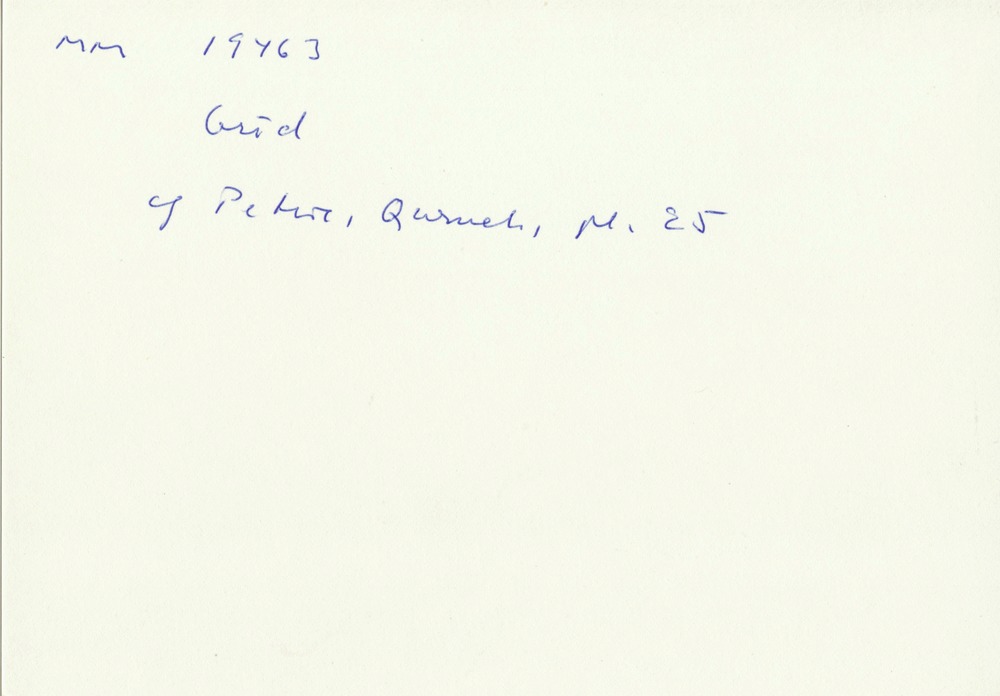 MM 19463
Grid
cf Petrie, Qurneh, pl. 25